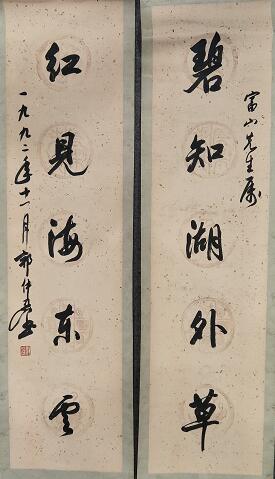 富山先生属
碧知湖外草
红见海东云
一九九二年十一月郭仲选